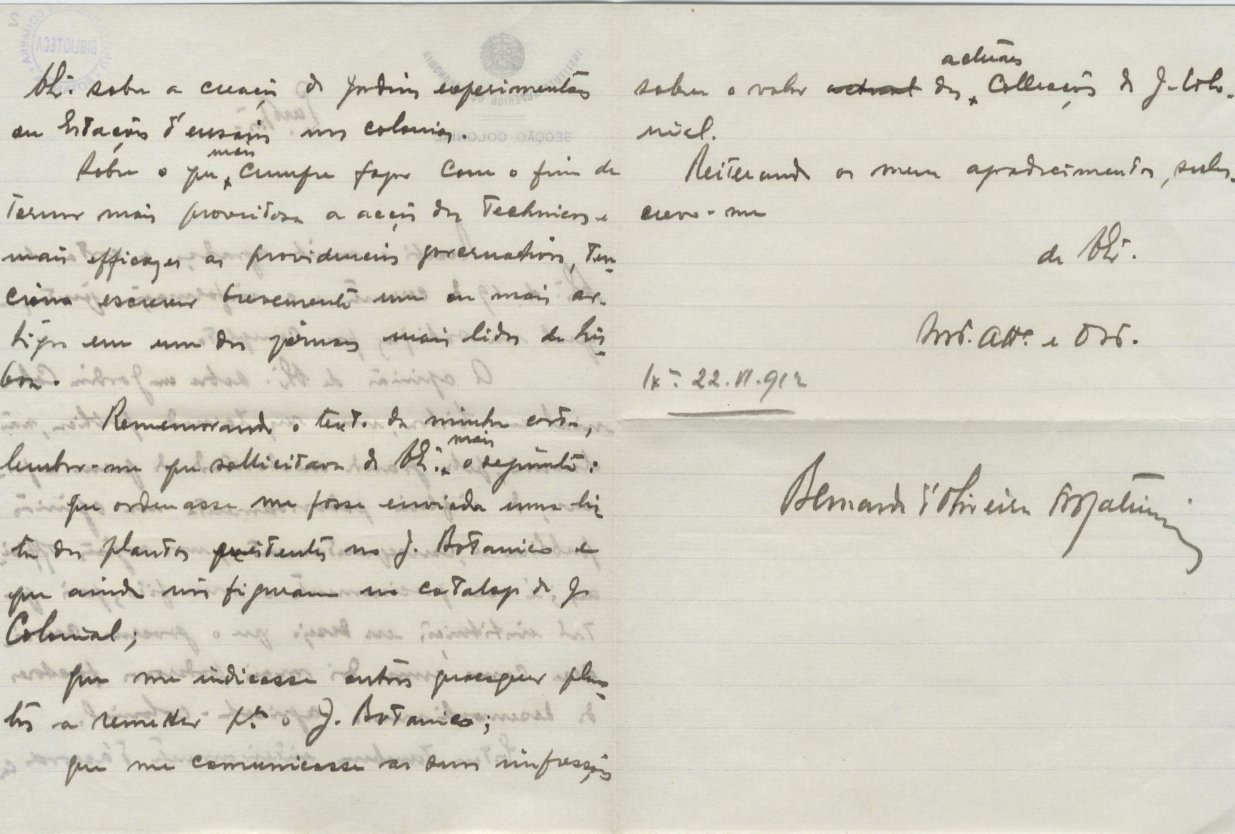 V. Ex.ª sobre a creação de jardins experimentaes
ou Estações d'ensaios nas colonias.
Sobre o que mais cumpre fazer com o fim de
tornar mais proveitosa a acção dos technicos e
mais efficazes as providencias governativas, ten-
ciono escrever brevemente um ou mais ar-
tigos em um dos jornaes mais lidos de Lis-
boa.
Rememorando o texto da minha carta,
lembro-me que sollicitava de V. Ex.ª mais o seguinte:
que ordenasse me fosse enviada uma lis-
ta das plantas existentes no J. Botanico e
que ainda não figuram no catalogo do J.
Colonial;
que me indicasse outras quaesquer plan-
tas a remetter p.ª o J. Botanico;
que me communicasse as suas impressões
sobre o valor actual das actuaes Collecções do J. Colo-
nial.
Reiterando os meus agradecimentos, subs-
crevo-me
de V. Ex.ª
M.to Att.º e Obr.
Lx.ª 22.VI.912
Bernardo d'Oliveira Fragateiro
BIBLIOTECA
SECÇÃO COLONIAL